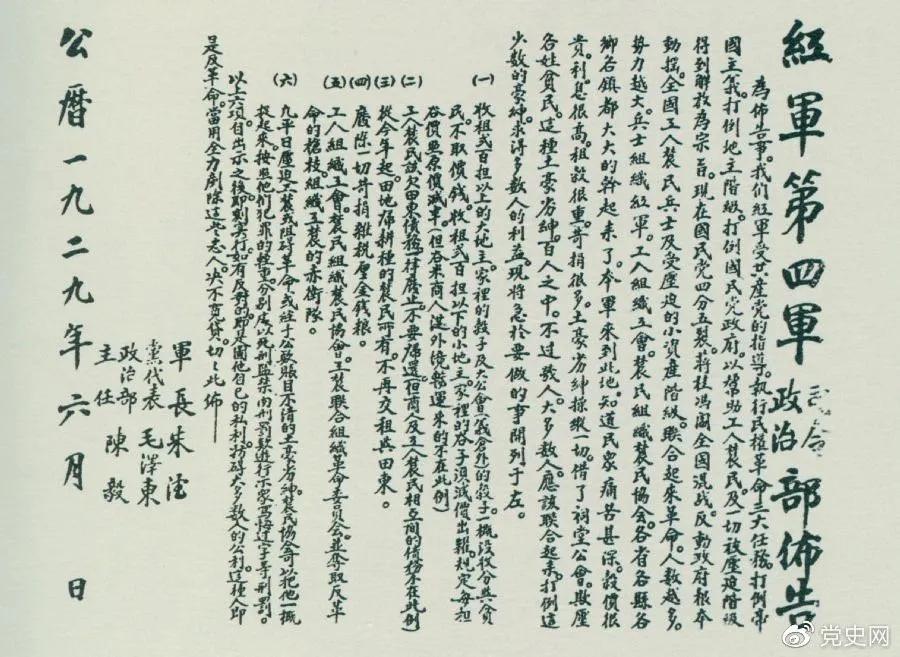 紅軍第四軍司令政治部佈告
為佈告事。我們紅軍受共產党的指導。執行民權革命三大任務。打倒帝
國主義。打倒地主階級。打倒國民党政府。以幫助工人農民及一切被壓迫階級
得到解放為宗旨。現在國民党四分五裂。蔣桂馮閻全國混战。反動政府根本
動搖。全國工人農民兵士及受壓迫的小資產階級。聯合起來革命。人數越多。
勢力越大。兵士組織紅軍。工人組織工會。農民組織農民協會。各省各縣各
鄉各鎮都大大的幹起來了。本軍來到此地。知道民衆痛苦甚深。穀價很
貴。利息很高。租穀很重。苛捐很多。土豪劣紳操縱一切。借了祠堂公會。欺壓
各姓貧民。這種土豪劣紳。百人之中。不过数人。大多数人。應該联合起來。打倒這
少数的豪紳。求得多数人的利益。現將急於要做的事開列于左。
(一) 收租弍百担以上的大地主。家裡的穀子及大公會(義倉除外)的穀子一概沒收分與貧
民。不取價錢。收租弍百担以下的小地主。家裡的谷子須減價出糶。規定每担
谷價照原價減半。(但谷米商人從外境販運來的不在此例)
(二) 工人農民該欠田東債務一律廢止。不要歸還(但商人及工人農民相互間的債務不在此例)
(三) 從今年起。田地歸耕種的農民所有。不再交租與田東。
(四) 廢除一切苛捐雜税厘金錢粮。
(五) 工人組織工會。農民組織農民協會。工農聯合組織革命委員会。並奪取反革
命的槍枝。組織工農的赤衛隊。
(六) 凡平日壓迫工農或阻碍革命或經手公款賬目不清的土豪劣紳。農民協會可以把他一概
捉起來。按照他們犯罪的輕重。分别處以死刑監禁肉刑罰款遊行示衆寫悔过字等刑罰。
以上六項自出示之後即刻實行。如有反對的。即是圖他自己的私利。妨碍大多数人的公利。這種人即
是反革命。當用全力剷除這些恶人。决不寬貸。切々此佈
軍長 朱德
黨代表 毛澤東
政治部主任 陳毅
公曆一九二九年六月 日
党史网